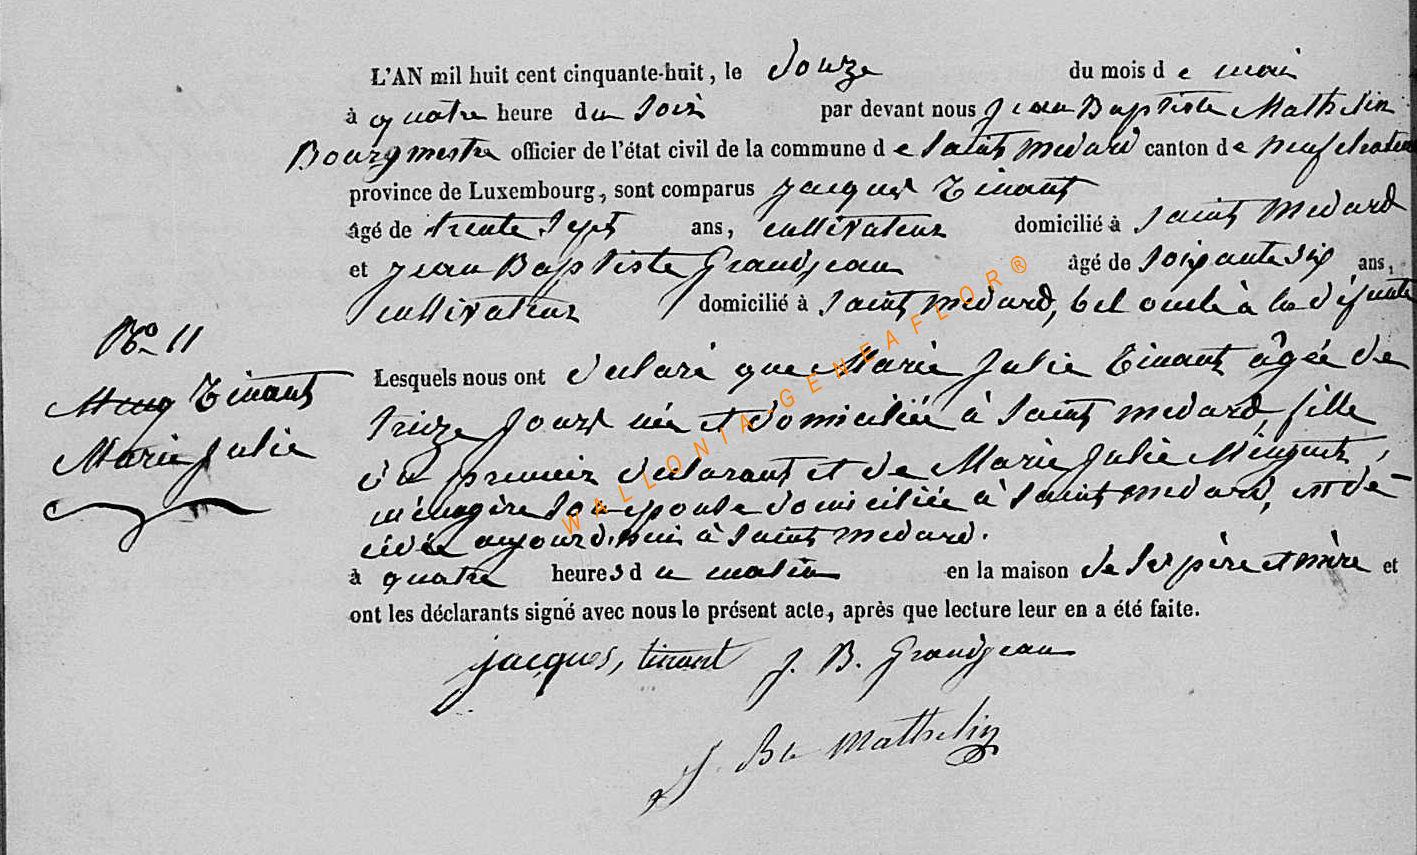 L'AN mil huit cent cinquante-huit, le douze du mois de mai
à quatre heure du soir par devant nous Jean Baptiste Mathelin
Bourgmestre officier de l'état civil de la commune de Saint médard canton de neufchateau
province de Luxembourg, sont comparus Jacques Tinant
âgé de trente sept ans, cultivateur domicilié à Saint Médard
et Jean Baptiste Grandjean âgé de soixante six ans,
cultivateur domicilié à Saint médard, bel oncle à la défunte
No 11
Tinant
Marie Julie
Lesquels nous ont déclaré que Marie Julie Tinant âgée de
treize jours née et domiciliée à Saint médard, fille
du premier déclarant et de Marie Julie
ménagère son épouse domiciliée à Saint médard, est dé-
cédée aujourd'hui à Saint médard.
à quatre heures du matin en la maison de ses père et mère et
ont les déclarants signé avec nous le présent acte, après que lecture leur en a été faite.
jacques, tinant J. B. Grandjean
J. Bte Mathelin
WALLONIA-GENEAFLOR®